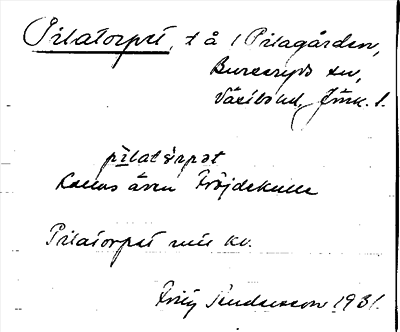 Pilatorpet, t å / Pilagården,
Bureseryds sn,
Västbo hd, Jönk. l.
pìlatòrpət
Kallas även Fröjdekulle
Pilatorpet mis kv.
1931.